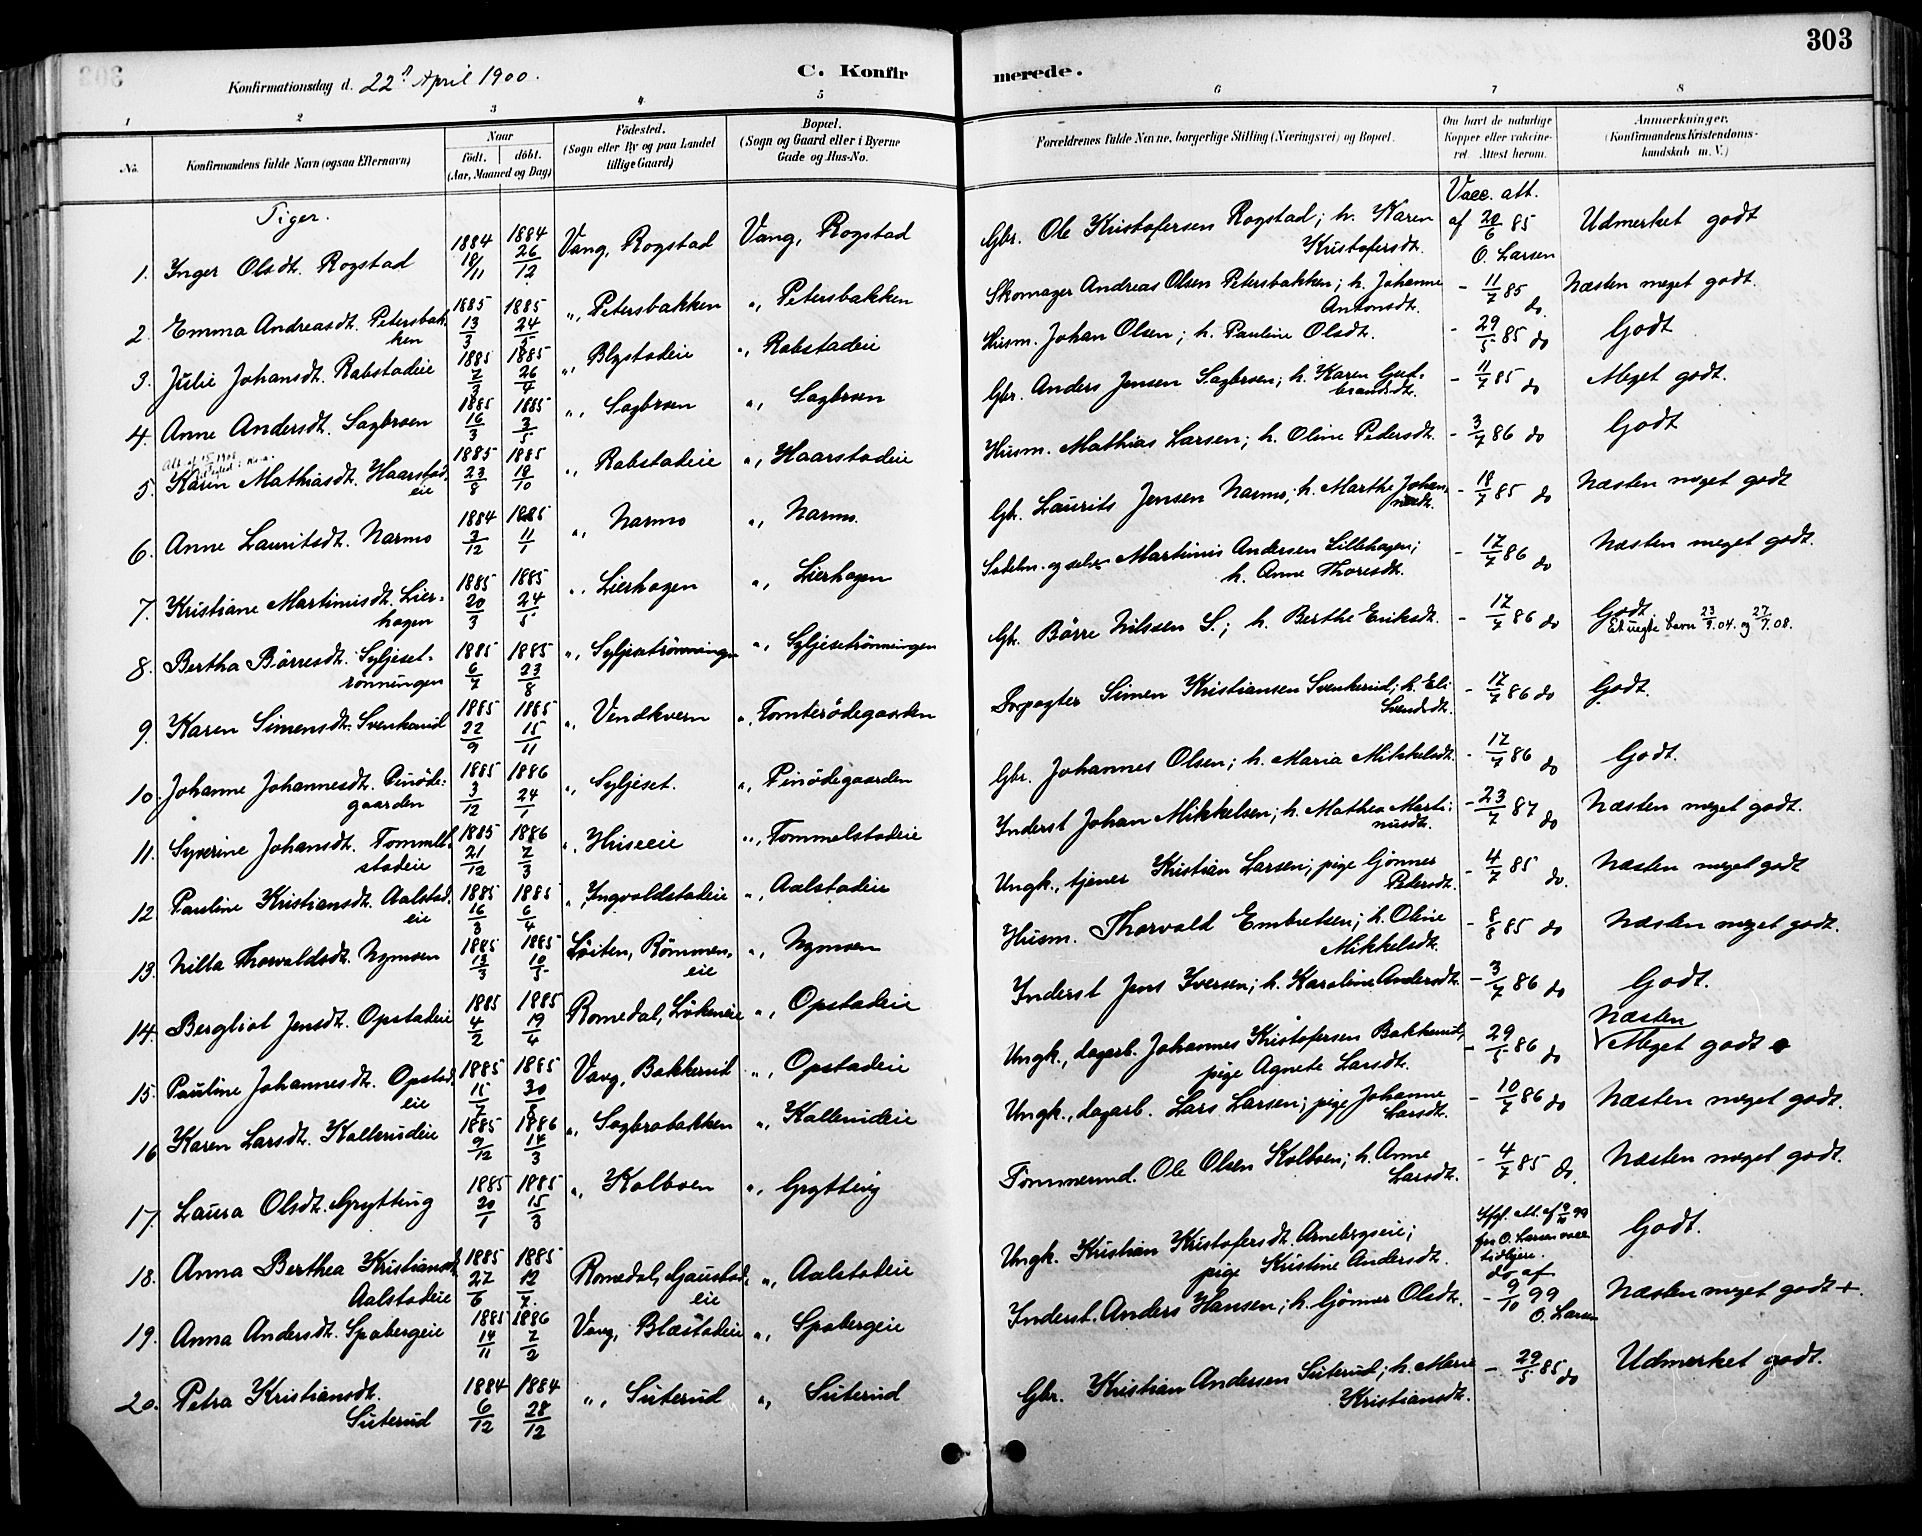 303
Konfirmationsdag d. 22n April 1900.
C. Konfirmerede.
1 2 3 4 5 6 7 8
No.
Konfirmandens fulde Navn (ogsaa Efternavn)
Naar
født. døbt.
(Aar, Maaned og Dag)
Fødested.
(Sogn eller By og paa Landet
tillige Gaard)
Bopæl.
(Sogn og Gaard eller i Byerne
Gade og Hus-No.
Forældrenes fulde Navne, borgerlige Stilling (Næringsvei) og Bopæl.
Om havt de naturlige
Kopper eller vakcine-
ret. Attest herom.
Anmærkninger.
(Konfirmandens Kristendoms-
kundskab m. V.)
Piger.
1. Inger Olsdt. Rogstad 1884 18/11 1884 26/12 Vang, Rogstad Vang, Rogstad Gbr. Ole Kristofersen Rogstad; h. Karen Kristofersdt. Vacc. att. af 20/6 85 O. Larsen Udmerket godt
2. Emma Andreasdt. Petersbakken 1885 13/3 1885 24/5 „ Petersbakken „ Petersbakken Skomager Andreas Olsen Petersbakken; h. Johanne Antonsdt. - 11/7 85 do. Næsten meget godt.
3. Julie Johansdt. Rabstadeie 1885 7/3 1885 26/4 „ Blystadeie „ Rabstadeie Husm. Johan Olsen; h. Pauline Olsdt. - 29/5 85 do Godt
4. Anne Andersdt. Sagbroen 1885 16/3 1885 3/5 „ Sagbroen „ Sagbroen Gbr. Anders Jensen Sagbroen; h. Karen Gudbrandsdt. - 11/7 85 do Meget godt.
5. Karen Mathiasdt. Haarstadeie 1885 23/8 1885 18/10 „ Rabstadeie „ Haarstadeie Husm. Mathias Larsen; h. Oline Pedersdt. - 3/7 86 do Godt
6. Anne Lauritsdt. Narmo 1884 3/12 1885 11/1 „ Narmo „ Narmo. Gbr. Laurits Jensen Narmo; h. Marthe Johannesdt. - 18/7 85 do Næsten meget godt
7. Kristiane Martinusdt. Lierhagen 1885 20/3 1885 24/5 „ Lierhagen „ Lierhagen Sadelm. og selv Martinus Andersen Lillehagen; h. Anne Thoresdt. - 17/7 86 do Næsten meget godt.
8. Bertha Börresdt. Syljesetrönningen 1885 6/7 1885 23/8 „ Syljesetrönningen „ Syljesetrönningen Gbr. Börre Nilssen S.; h. Berthe Eriksdt. - 17/7 86 do Godt Et uegte barn 23/9 04. og 27/7 08.
9. Karen Simensdt. Svenkerud 1885 22/9 1885 15/11 „ Vendkvern „ Tomterödegaarden Forpagter Simen Kristiansen Svenkerud; h. Eli Svendsdt. - 17/7 86 do Godt.
10. Johanne Johannesdt. Pinödegaarden 1885 3/12 1886 24/1 „ Syljeset. „ Pinödegaarden Gbr. Johannes Olsen; h. Maria Mikkelsdt. - 17/7 86 do Godt.
11. Syverine Johansdt. Tommelstadeie 1885 21/12 1886 7/3 „ Huseeie „ Tommelstadeie Inderst Johan Mikkelsen; h. Mathea Martinusdt. - 23/7 87 do Næsten meget godt.
12 Pauline Kristiansdt. Aalstadeie 1885 16/3 1885 6/4 „ Ingvoldstadeie „ Aalstadeie Ungk., tjener Kristian Larsen; pige Gjönner Petersdt. - 4/7 85 do. Næsten meget godt
13. Nilla Thorvaldsdt. Nymoen 1885 13/3 1885 10/5 Löiten, Römmeneie „ Nymoen Husm. Thorvald Embretsen; h. Oline Mikkelsdt. - 8/8 85 do Næsten meget godt.
14. Bergliot Jensdt. Opstadeie 1885 4/2 1885 19/4 Romedal, Lökeneie „ Opstadeie Inderst Jens Iversen; h. Karoline Andersdt. - 3/7 86 do Godt.
15. Pauline Johannesdt. Opstadeie 1885 15/7 1885 30/8 Vang, Bakkerud „ Opstadeie Ungk., dagarb. Johannes Kristofersen Bakkerud; pige Agnete Larsdt. - 29/5 86 do Næsten Meget godt
16 Karen Larsdt. Kallerudeie 1885 9/12 1886 14/3 „ Sagbrobakken „ Kallerudeie Ungk., dagarb. Lars Larsen; pige Johanne Larsdt. - 10/7 86 do Næsten meget godt.
17. Laura Olsdt. Grytting 1885 20/1 1885 15/3 „ Kolboen „ Grytting Tömmermd. Ole Olsen Kolboen; h. Anne Larsdt. - 4/7 85 do. Næsten meget godt.
18. Anna Berthea Kristiansdt. Aalstadeie 1885 27/6 1885 12/7. Romedal, Gaustadeie „ Aalstadeie Ungk. Kristian Kristofersdt. Arnebergseie; pige Kristine Andersdt. Ifgl. att. af 9/10 99 fra O. Larsen vacc. tidligere. Godt.
19. Anna Andersdt. Spabergeie 1885 14/11 1886 7/2 Vang, Blæstadeie „ Spabergeie Inderst. Anders Hansen; h. Gjönner Olsdt. do af - 9/10 99 O. Larsen Næsten meget godt +.
20. Petra Kristiansdt. Suterud 1884 6/12 1884 28/12 „ Suterud „ Suterud Gbr. Kristian Andersen Suterud; h. Marie Kristiansdt. - 29/5 85 do Udmerket godt.